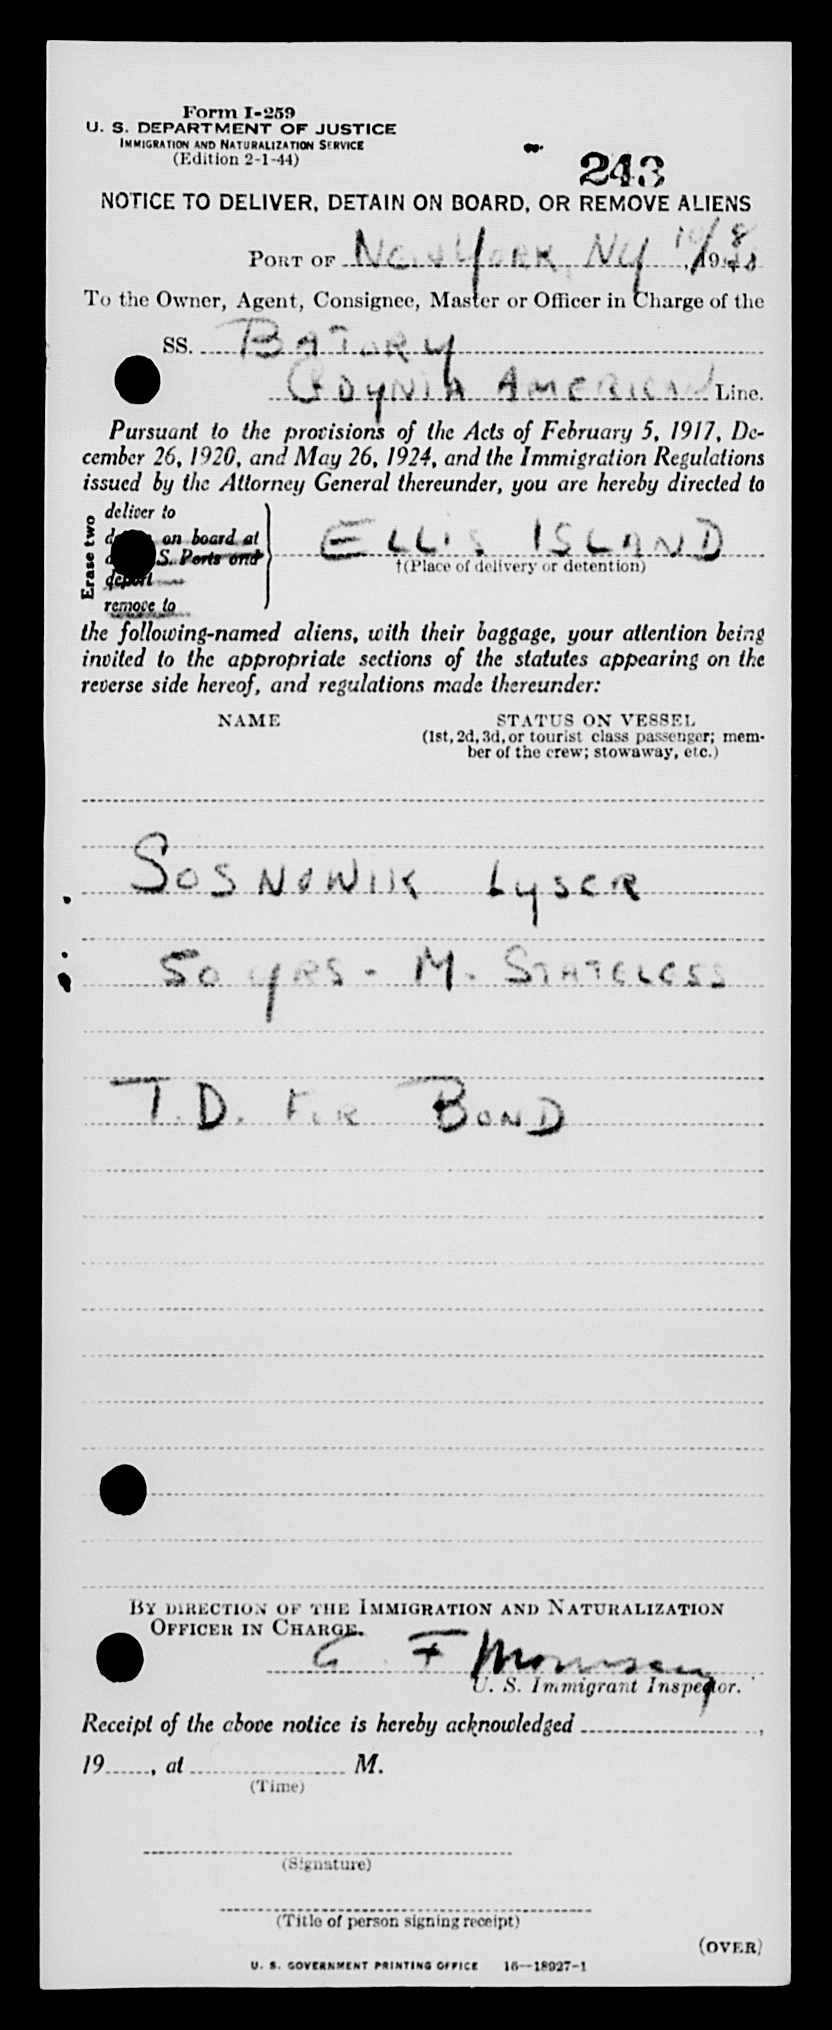 Form I-259
U. S. DEPARTMENT OF JUSTICE
IMMIGRATION AND NATURALIZATION SERVICE
(Edition 2-1-44)
243
NOTICE TO DELIVER, DETAIN ON BOARD, OR REMOVE ALIENS
PORT OF New York, NY 10/8, 1948
To the Owner, Agent, Consignee, Master or Officer in Charge of the
SS. BATORY
GDYNIA AMERICAN Line.
Pursuant to the provisions of the Acts of February 5, 1917, De-
cember 26, 1920, and May 26, 1924, and the Immigration Regulations
issued by the Attorney General thereunder, you are hereby directed to
Erase two
deliver to
on board at
S. Ports and
deport
remove to
ELLIS ISLAND
†(Place of delivery or detention)
the following-named aliens, with their baggage, your attention being
invited to the appropriate sections of the statutes appearing on the
reverse side hereof, and regulations made thereunder:
NAME STATUS ON VESSEL
(1st, 2d, 3d, or tourist class passenger; mem-
ber of the crew; stowaway, etc.)
SOSNOWIK LYSER
50 yrs - M. STATELESS
T.D. FOR BOND
BY DIRECTION OF THE IMMIGRATION AND NATURALIZATION
OFFICER IN CHARGE.
F Morrissey
U. S. Immigrant Inspector.
Receipt of the above notice is hereby acknowledged ,
19 , at M.
(Time)
(Signature)
(Title of person signing receipt)
(OVER)
U. S. GOVERNMENT PRINTING OFFICE 16—18927-1